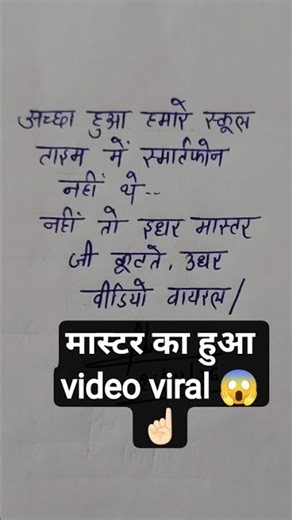 अच्छा हुआ हमारे स्कूल
टाइम में स्मार्टफोन
नहीं थे--
नहीं तो इधर मास्टर
जी कूटते, उधर
वीडियो वायरल/
मास्टर का हुआ
video viral 😱
☝🏻